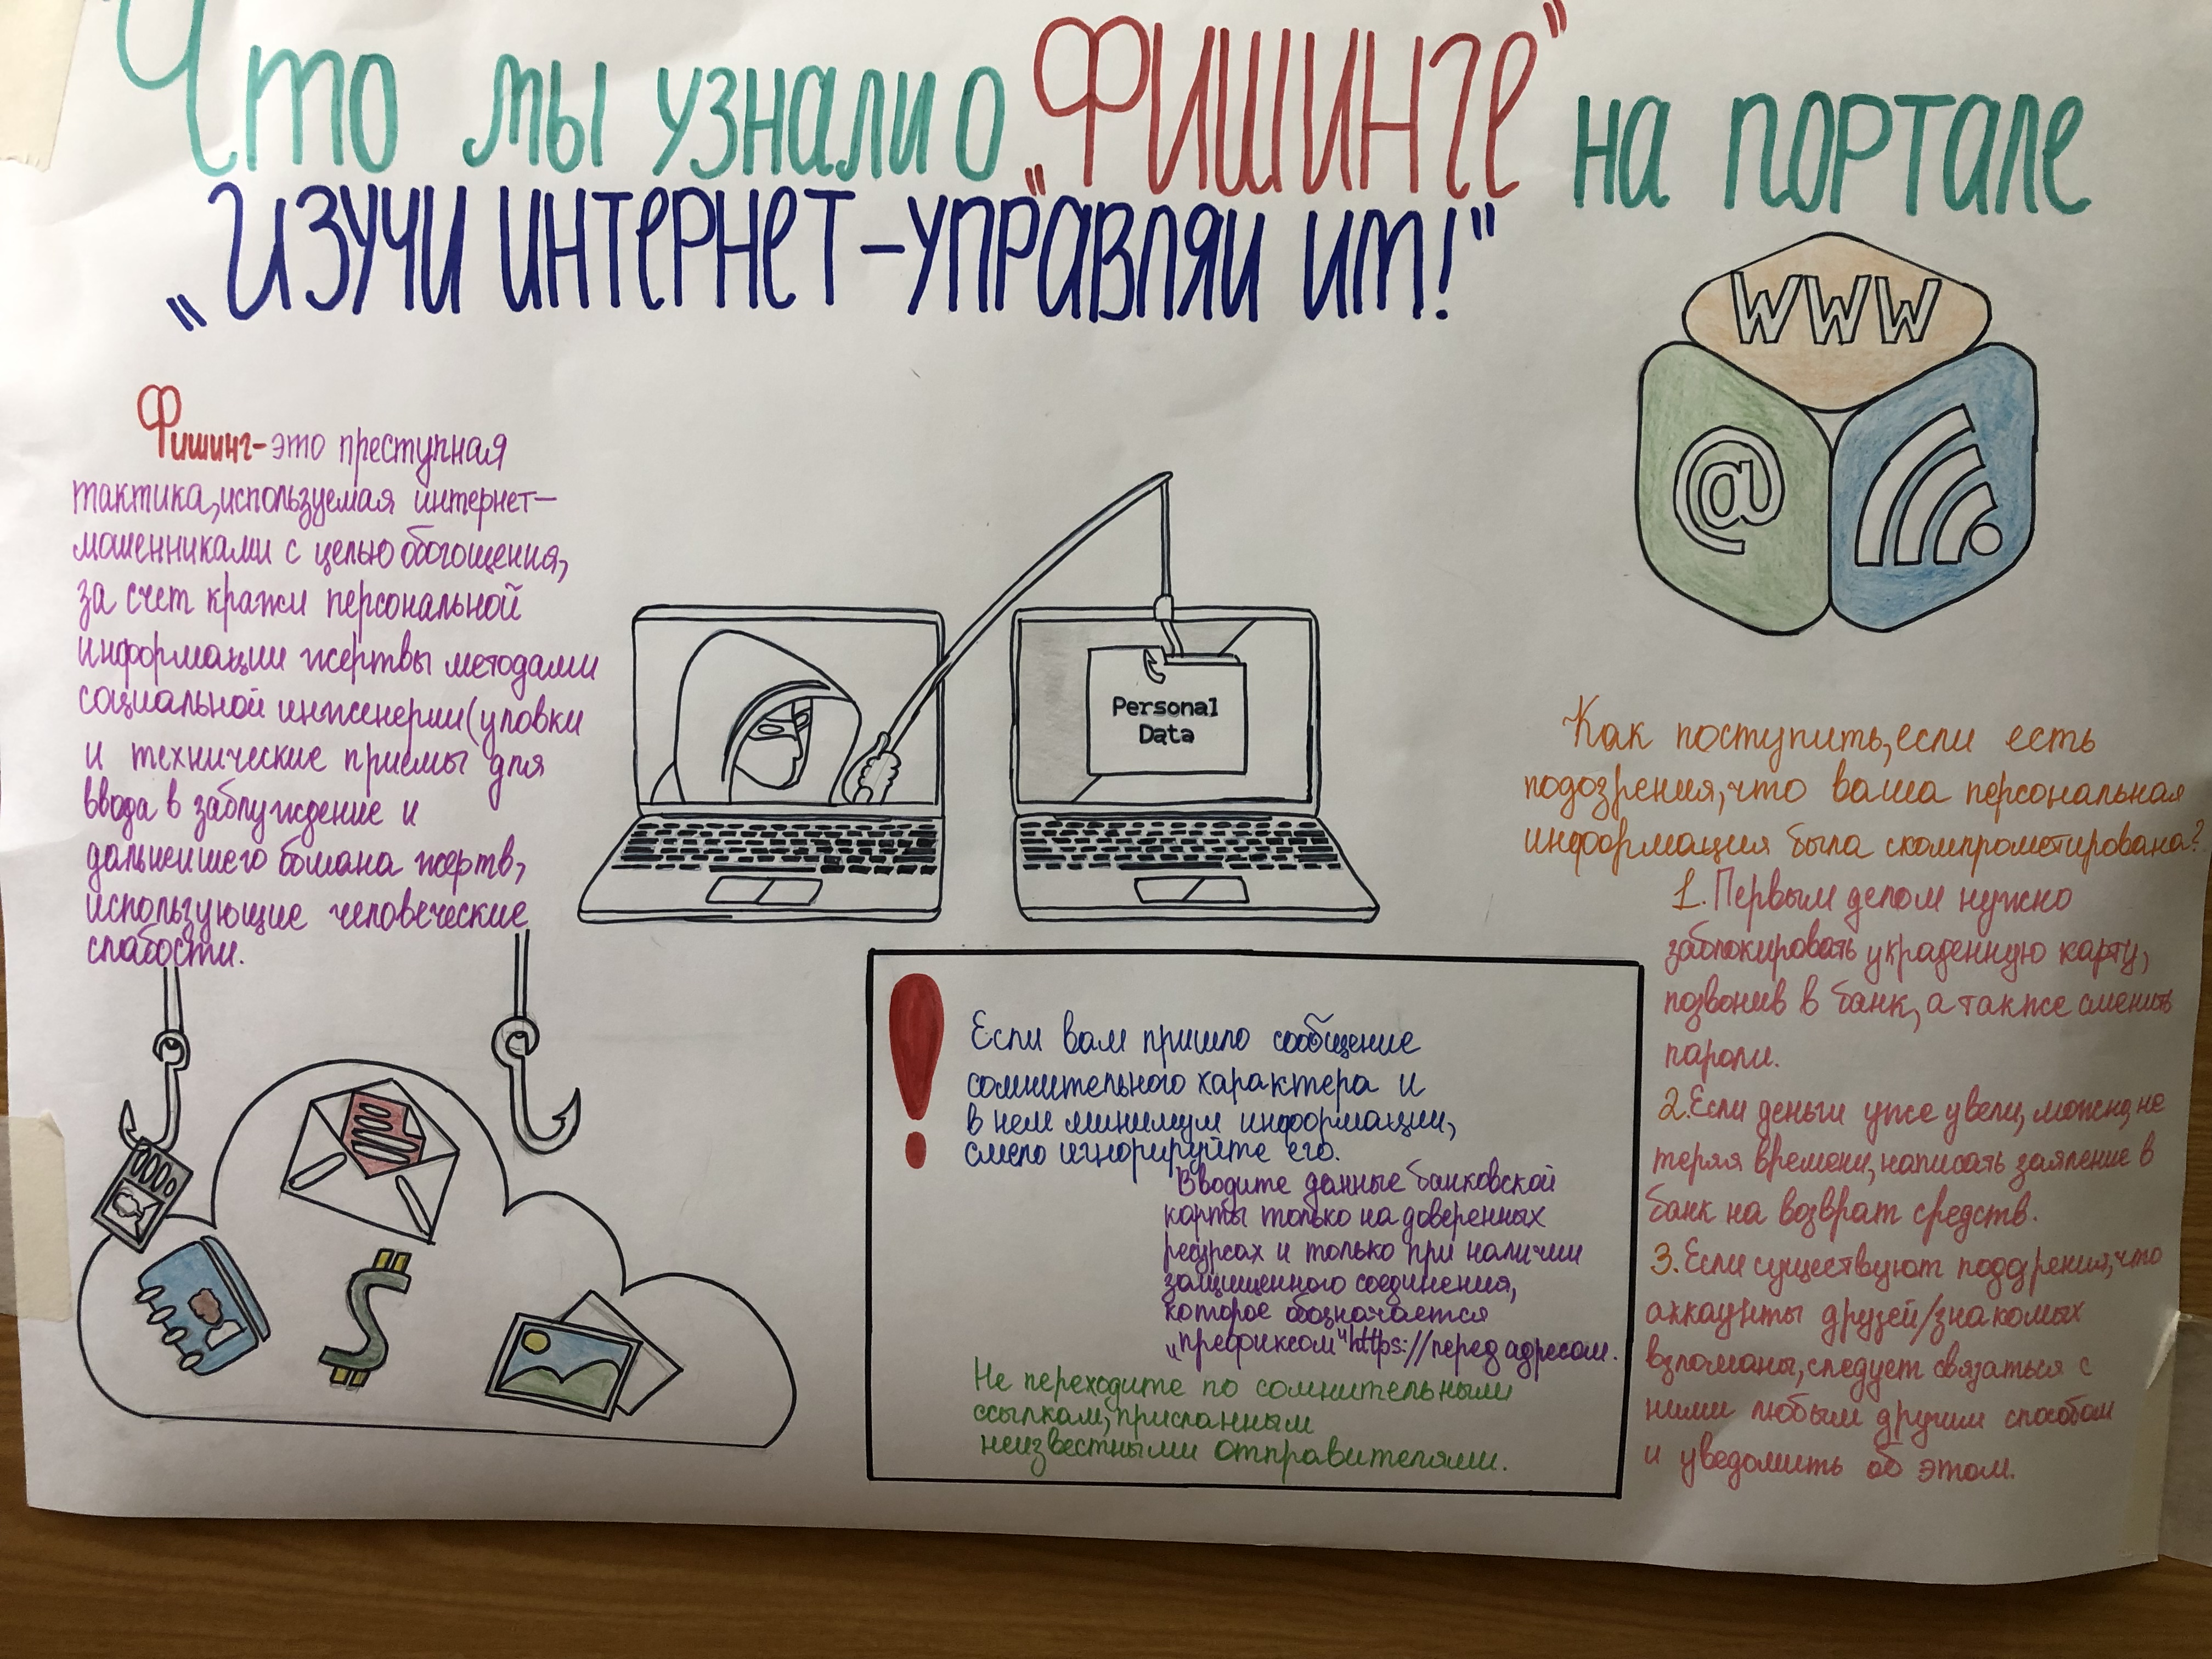 Что мы узнали о „Фишинге" на портале
„Изучи интернет-управляй им!"
WWW
@
Фишинг-это преступная
тактика, используемая интернет-
мошенниками с целью обогощения,
за счет кражи персональной
информации жертвы методами
социальной инженерии (уловки
и технические приемы для
ввода в заблуждение и
дальнейшего обмана жертв,
использующие человеческие
слабости.
Personal
Data
Если вам пришло сообщение
сомнительного характера и
в нем минимум информации,
смело игнорируйте его.
Вводите данные банковской
карты только на доверенных
ресурсах и только при наличии
защищенного соединения,
которое обозначается
„префиксом" https:// перед адресом.
Не переходите по сомнительным
ссылкам, присланным
неизвестными отправителями.
Как поступить, если есть
подозрения, что ваша персональная
информация была скомпрометирована?
1. Первым делом нужно
заблокировать украденную карту,
позвонив в банк, а также сменить
пароли.
2. Если деньги уже увели, можно, не
теряя времени, написать заявление в
банк на возврат средств.
3. Если существуют подозрения, что
аккаунты друзей/знакомых
взломаны, следует связаться с
ними любым другим способом
и уведомить об этом.